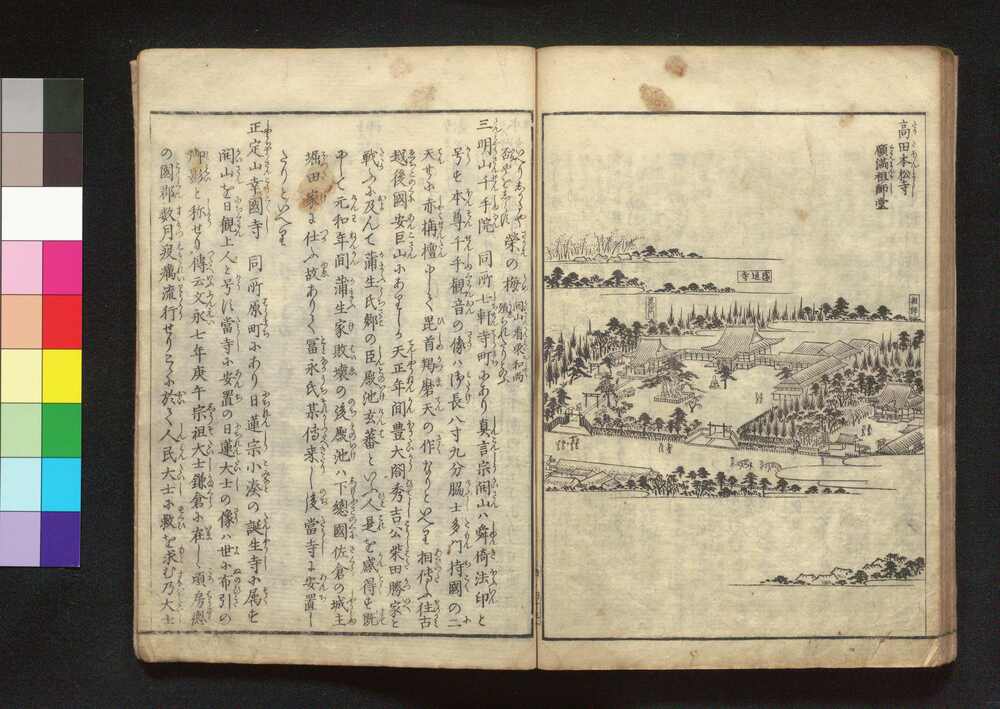 高田本松寺
願満祖師堂
蓮退寺
栄の梅
三明山千手院 同所七軒寺町にあり真言宗開山ハ舜倚法印と
号す本尊千手観音の像ハ御長八寸九分脇士多門持國の二
天共に赤栴檀にして毘首羯磨天の作なりといえり相傳ふ往古
越後國安巨山にありしか天正年間豊大閤秀吉公柴田勝家と
戦ふに及んて蒲生氏郷の臣厩池玄蕃といふ人是を感得す既
にして元和年間蒲生家敗壊の後厩池ハ下總國佐倉の城主
堀田家に仕ふ故ありて冨永氏某傳来し後當寺に安置し
たりといへり
正定山幸國寺 同所原町にあり日蓮宗小湊の誕生寺に属す
開山を日観上人と号に當寺に安置の日蓮大士の像ハ世に布引の
御影と称せり傳云文永七年庚午宗祖大士鎌倉に在し頃房總
の國郡数月疫癘流行せりこゝに於て人民大士に救を求む乃大士